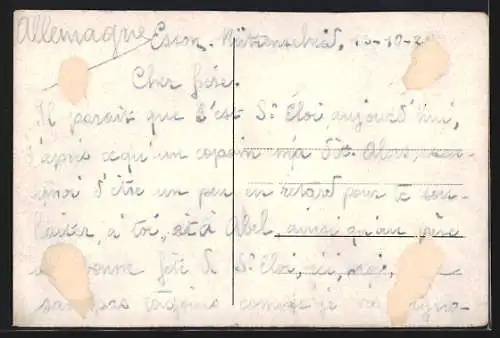 Allemagne
Essen. 10-10-2
Cher frère.
Il parait que c'est St Eloi aujourd'hui,
d'après ce qu'un copain m'a dit. Alors, excu-
moi d'être un peu en retard pour te sou-
haiter, à toi, et à Abel, ainsi qu'au père
une bonne fête de St Eloi, ici, moi,
sais pas toujours comme je